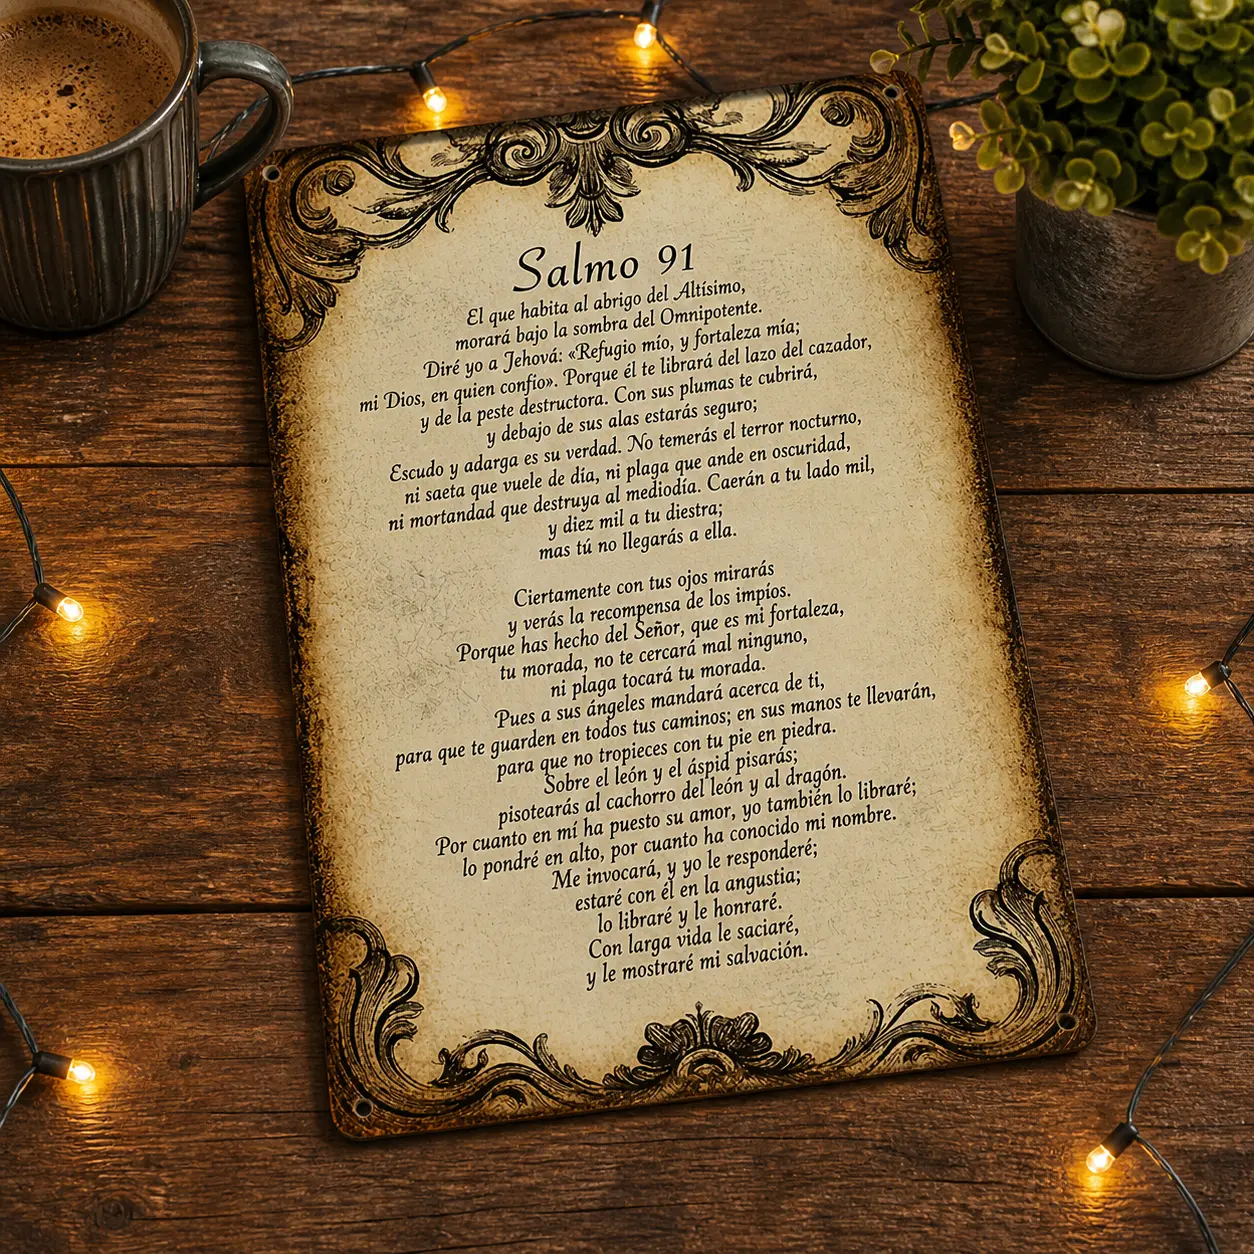 Salmo 91
El que habita al abrigo del Altísimo,
morará bajo la sombra del Omnipotente.
Diré yo a Jehová: «Refugio mío, y fortaleza mía;
mi Dios, en quien confío». Porque él te librará del lazo del cazador,
y de la peste destructora. Con sus plumas te cubrirá,
y debajo de sus alas estarás seguro;
Escudo y adarga es su verdad. No temerás el terror nocturno,
ni saeta que vuele de día, ni plaga que ande en oscuridad,
ni mortandad que destruya al mediodía. Caerán a tu lado mil,
y diez mil a tu diestra;
mas tú no llegarás a ella.
Ciertamente con tus ojos mirarás
y verás la recompensa de los impíos.
Porque has hecho del Señor, que es mi fortaleza,
tu morada, no te cercará mal ninguno,
ni plaga tocará tu morada.
Pues a sus ángeles mandará acerca de ti,
para que te guarden en todos tus caminos; en sus manos te llevarán,
para que no tropieces con tu pie en piedra.
Sobre el león y el áspid pisarás;
pisotearás al cachorro del león y al dragón.
Por cuanto en mí ha puesto su amor, yo también lo libraré;
lo pondré en alto, por cuanto ha conocido mi nombre.
Me invocará, y yo le responderé;
estaré con él en la angustia;
lo libraré y le honraré.
Con larga vida le saciaré,
y le mostraré mi salvación.